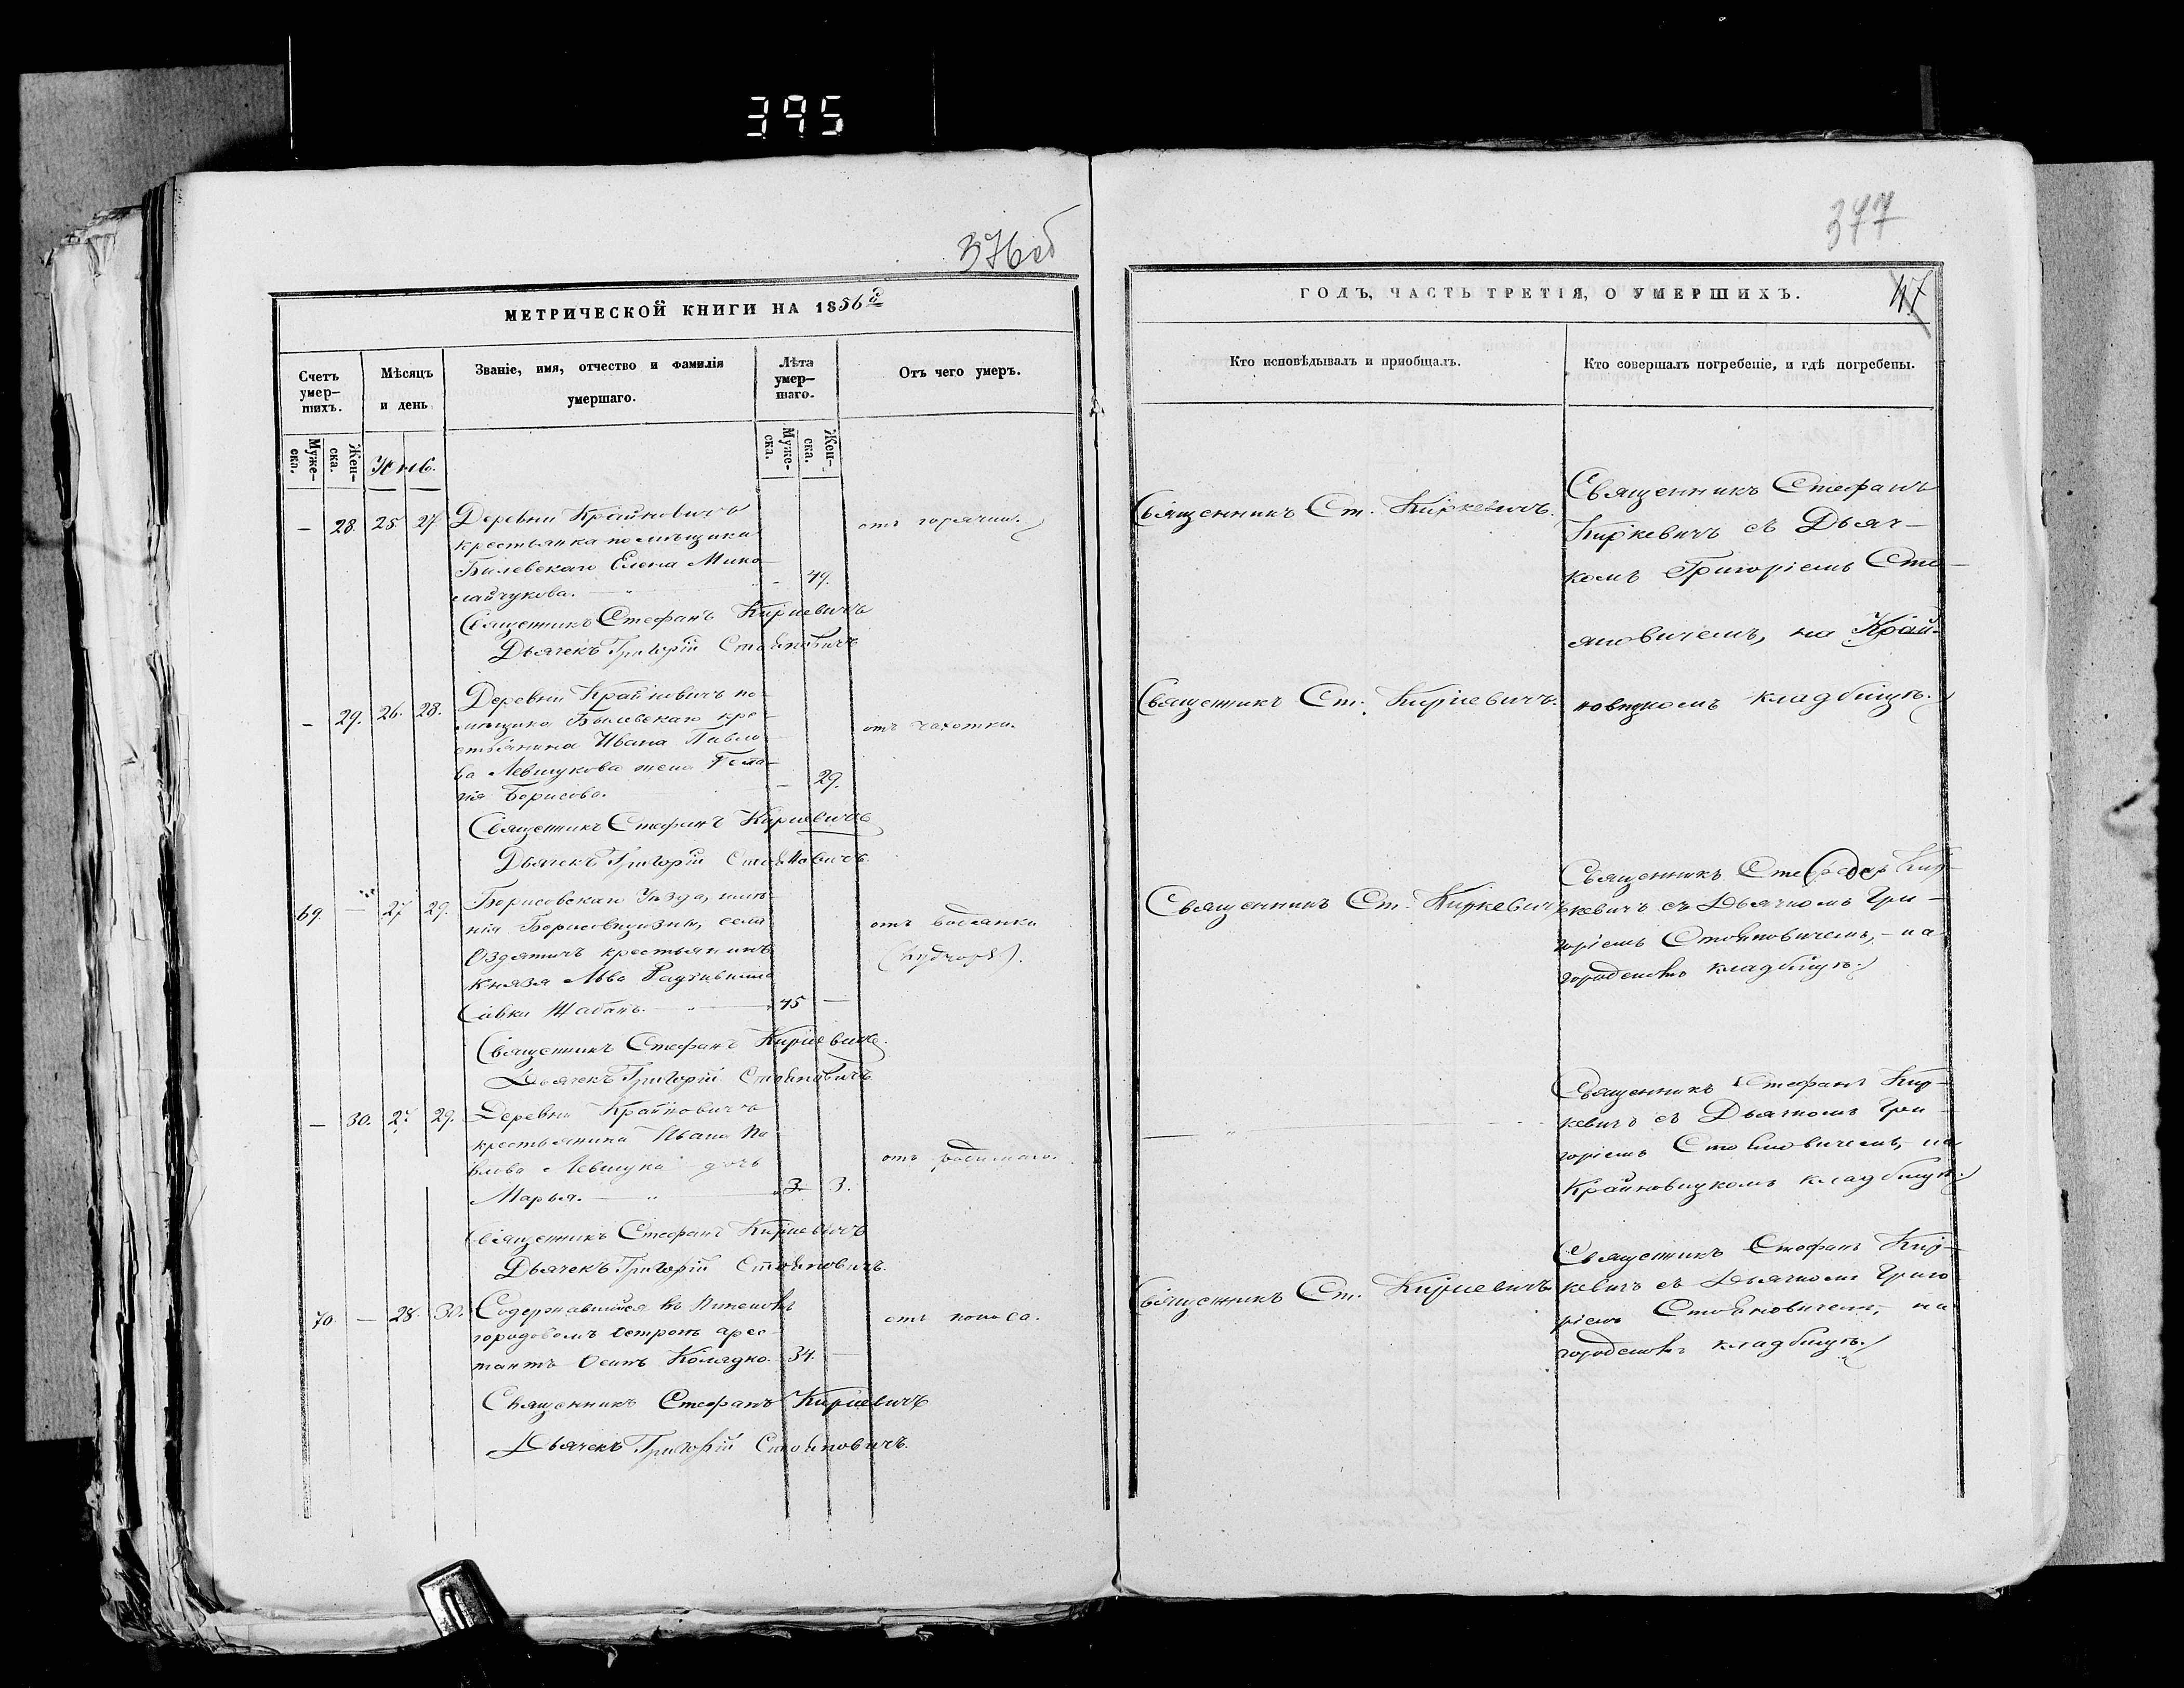 395
376об
377
47
МЕТРИЧЕСКОЙ КНИГИ НА 1856й
ГОДЪ, ЧАСТЬ ТРЕТІЯ, О УМЕРШИХЪ.
Счетъ умер-шихъ.
Мѣсяцъ и день
Званіе, имя, отчество и фамилія
умершаго.
Лѣта умер-шаго.
Отъ чего умеръ.
Кто исповѣдывалъ и пріобщалъ.
Кто совершалъ погребеніе, и гдѣ погребены.
Муже-ска.
Жен-ска.
Муже-ска.
Жен-ска.
— 28. 25 27
Деревни Крайновичъ
крестьянка помѣщика
Билевскаго Елена Мико-
лайчукова. — 49.
отъ горячки.
Священникъ Стефанъ Киркевичъ
Дьячекъ Григорій Стояновичъ
Священникъ Ст. Киркевичъ.
Священникъ Стефанъ
Киркевичъ съ Дьяч-
комъ Григоріемъ Сто-
яновичемъ, на Край-
новицкомъ кладбищѣ.
— 29. 26. 28.
Деревни Крайновичъ по-
мѣщика Былевскаго кре-
стьянина Ивана Павло-
ва Левчукова жена
Борисова. — 29.
отъ чахотки.
Священникъ Стефанъ Киркевичъ
Дьячекъ Григорій Стояновичъ
Священникъ Ст. Киркевичъ.
69. — 27 29.
Борисовскаго Уѣзда, имѣ-
нія Борисовщизны, села
Оздятичъ крестьянинъ
Князя Льва
Савки Шабанъ. 45 —
отъ водянки
Священникъ Стефанъ Киркевичъ.
Дьячекъ Григорій Стояновичъ
Священникъ Ст. Киркевичъ
Священникъ Стефанъ Кир-
кевичъ съ Дьячкомъ Гри-
горіемъ Стояновичемъ, - на
городскомъ кладбищѣ.
— 30. 27 29.
Деревни Крайновичъ
крестьянина Ивана Па-
влова Левчука дочь
Марья. — 3. 3.
отъ родимаго.
Священникъ Стефанъ Киркевичъ
Дьячекъ Григорій Стояновичъ.
Священникъ Стефанъ Кир-
кевичъ съ Дьячкомъ Гри-
горіемъ Стояновичемъ, на
Крайновицкомъ кладбищѣ.
70. — 28. 30.
Содержавшійся въ Пинскомъ
городовомъ Острогѣ арес-
тантъ Осипъ Колядко. 34. —
отъ поноса.
Священникъ Стефанъ Киркевичъ
Дьячекъ Григорій Стояновичъ.
Священникъ Ст. Киркевичъ
Священникъ Стефанъ Кир-
кевичъ съ Дьячкомъ Григо-
ріемъ Стояновичемъ, на
городскомъ кладбищѣ.